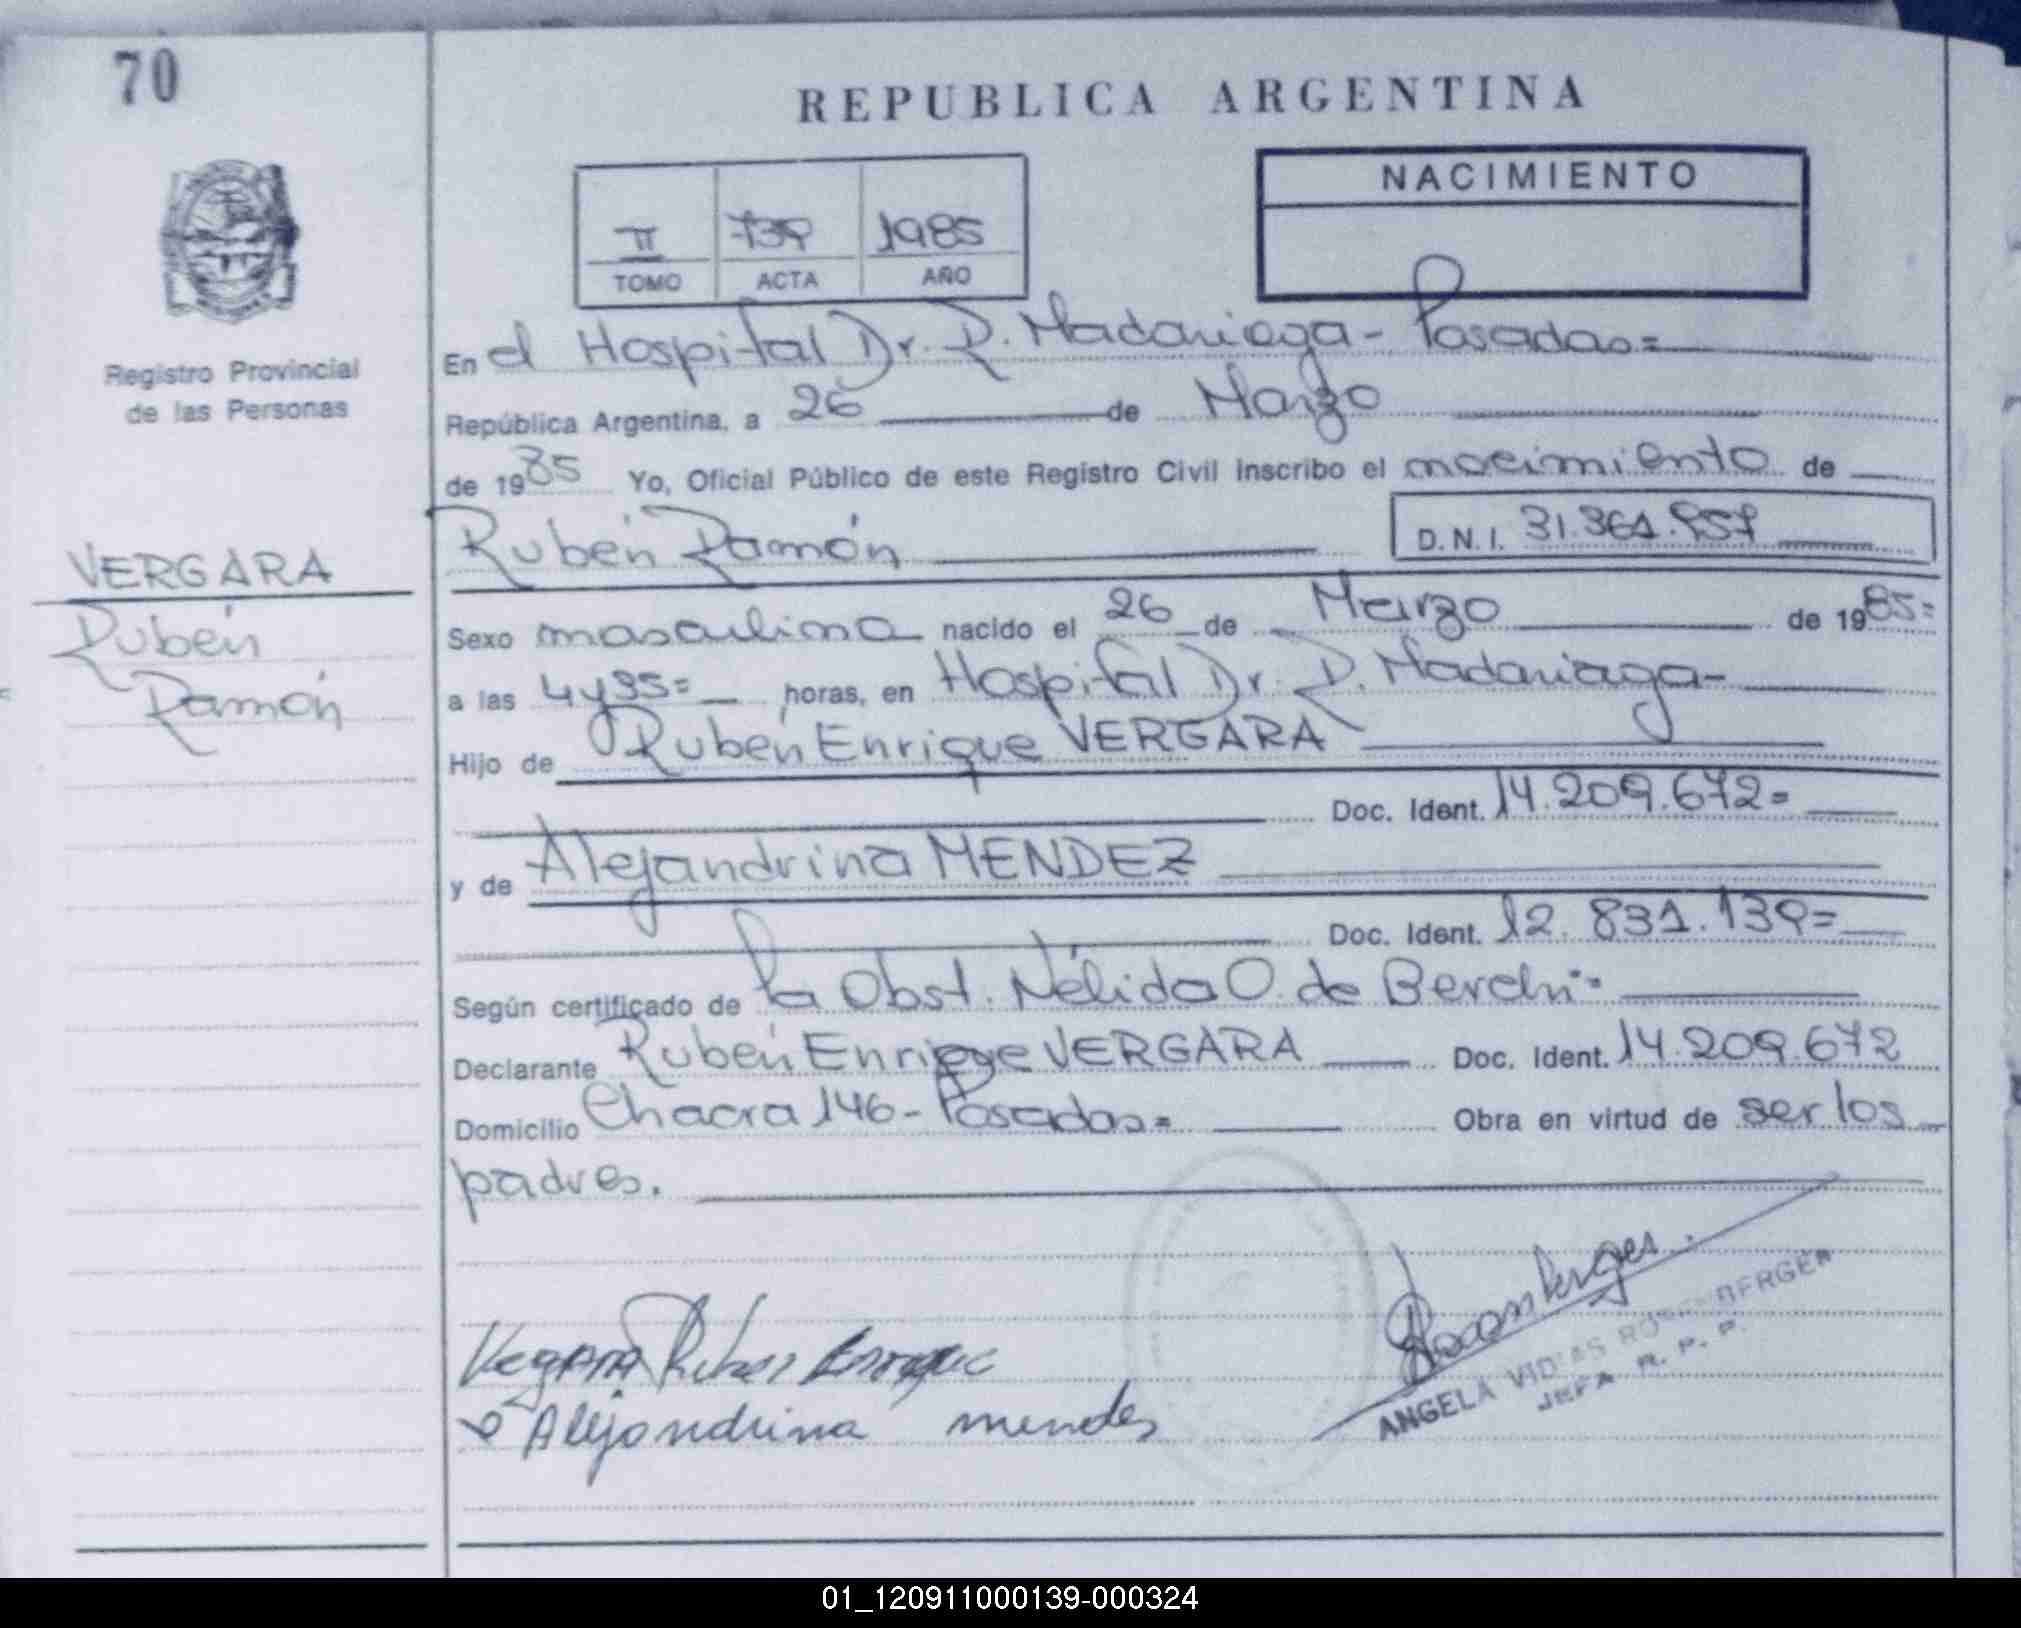 70
REPUBLICA ARGENTINA
NACIMIENTO
II 739 1985
TOMO ACTA AÑO
Registro Provincial
de las Personas
VERGARA
Rubén
Ramón
En el Hospital Dr. R. Madariaga - Posadas=
República Argentina, a 26 de Marzo
de 1985 Yo, Oficial Público de este Registro Civil inscribo el nacimiento de
Rubén Ramón
D.N.I. 31.361.957
Sexo masculino nacido el 26 de Marzo de 1985=
a las 4 y 35= horas, en Hospital Dr. R. Madariaga-
Hijo de Rubén Enrique VERGARA
Doc. Ident. 14.209.672=
y de Alejandrina MENDEZ
Doc. Ident. 12.831.139=
Según certificado de la Obst. Nélida O. de
Declarante Rubén Enrique VERGARA Doc. Ident. 14.209.672
Domicilio Chacra 146 - Posadas= Obra en virtud de ser los
padres.
Vergara Ruben Enrique
Alejandrina mendes
ANGELA
JEFA R. P. P.
01_120911000139-000324